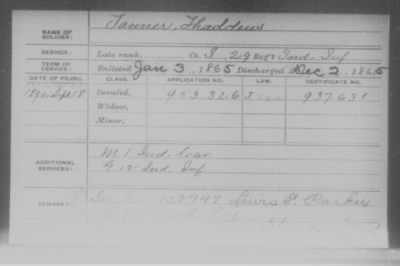 NAME OF SOLDIER: Tanner, Thaddeus
SERVICE: Late rank, Co. I, 29 Reg't Ind. Inf
TERM OF SERVICE: Enlisted Jan 3, 1865 Discharged Dec 2, 1865
DATE OF FILING. CLASS. APPLICATION NO. LAW. CERTIFICATE NO.
1890 Sept 18 Invalid, 953.326 937.631
Widow,
Minor,
ADDITIONAL SERVICES: M 1 Ind. Cav.
G 12 Ind. Inf
REMARKS: 158947 Lewis E. Parker